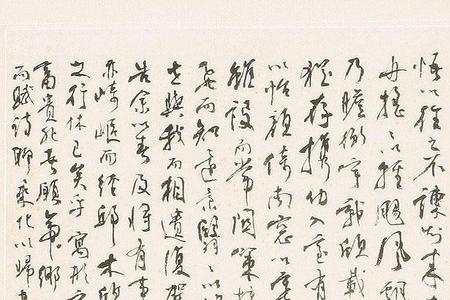 悟以往之不諫知來
舟搖〻以輕颺風飄
乃瞻衡宇載欣載
猶存攜幼入室有
以怡顏倚南窗以寄
雖設而常關策扶
飛而知還景翳〻以
世與我而相遺復駕
告余以春及將有事
亦崎嶇而經邱木欣
之行休已矣乎寓形宇
富貴非吾願帝鄉
而賦詩聊乘化以歸盡